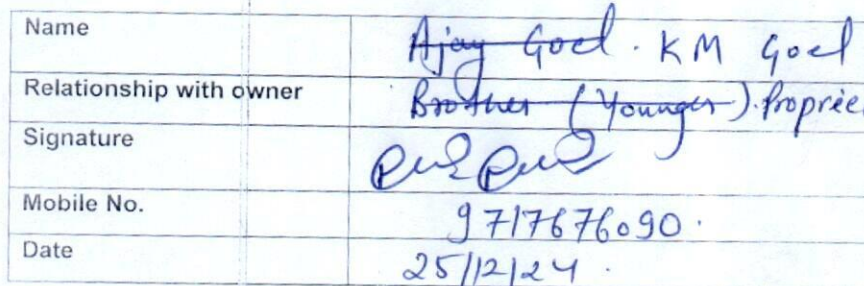 Name Ajay Goel. KM Goel
Relationship with owner Brother (Younger). Propriet
Signature
Mobile No. 9717676090.
Date 25/12/24.